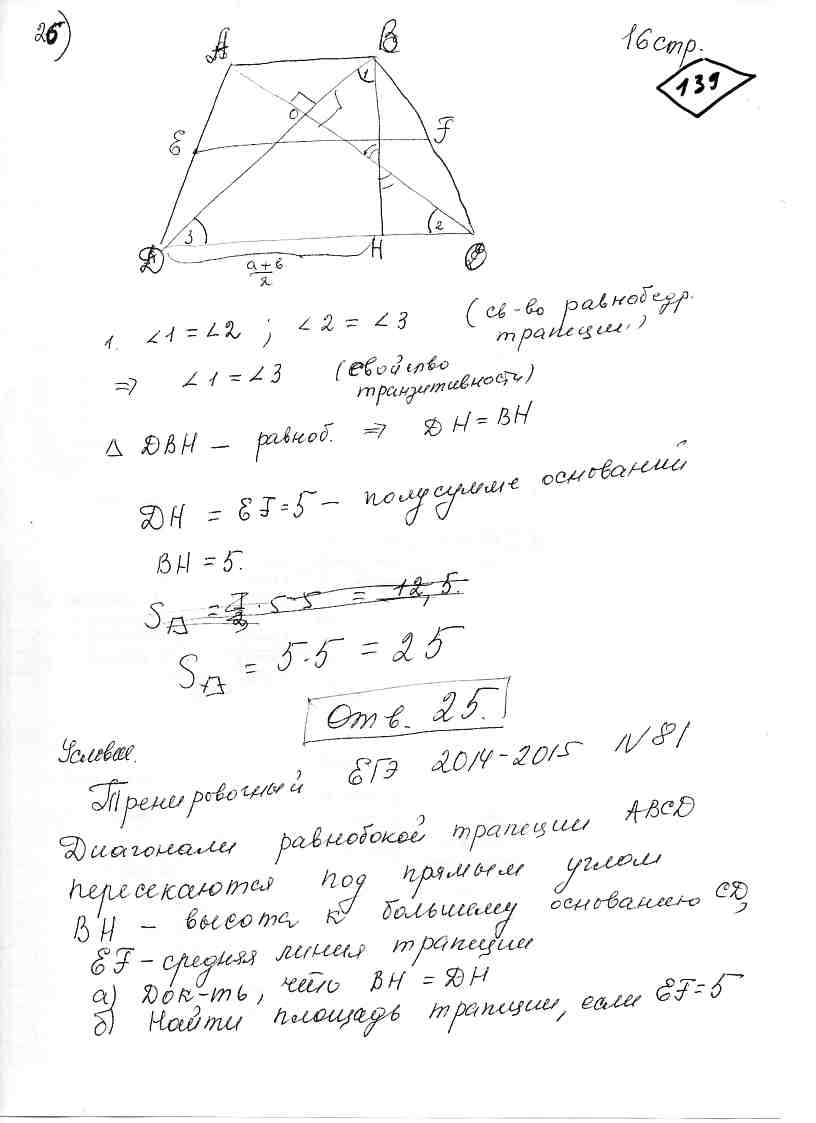 26)
16 стр.
139
A B
O 1
E F
Д 3 H 2 C
a+b
2
1. ∠1 = ∠2 ; ∠2 = ∠3 (св-во равнобедр.
трапеции.)
⇒ ∠1 = ∠3 (свойство
транзитивности)
Δ DBH – равноб. ⇒ DH = BH
DH = EF = 5 – полусумме оснований
BH = 5.
S = 1/2 · 5 · 5 = 12,5.
S = 5·5 = 25
Отв. 25.
Условие.
Тренировочный ЕГЭ 2014-2015 N 81
Диагонали равнобокой трапеции ABCD
пересекаются под прямым углом
BH – высота к большему основанию CD,
EF – средняя линия трапеции
а) Док-ть, что BH = DH
б) Найти площадь трапеции, если EF = 5